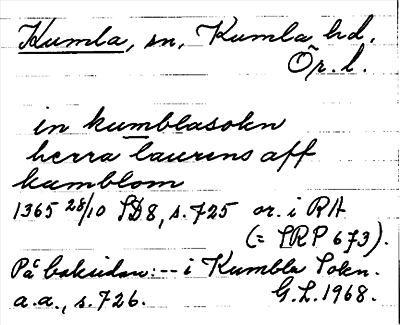 Kumla, sn, Kumla hd.
Ör. l.
in kumblasokn
herra laurens aff
kumblom
1365 28/10 SD 8, s. 725 or. i RA
(= SRP 673).
På baksidan: -- i Kumbla Sokn.
a.a., s. 726. G.L. 1968.